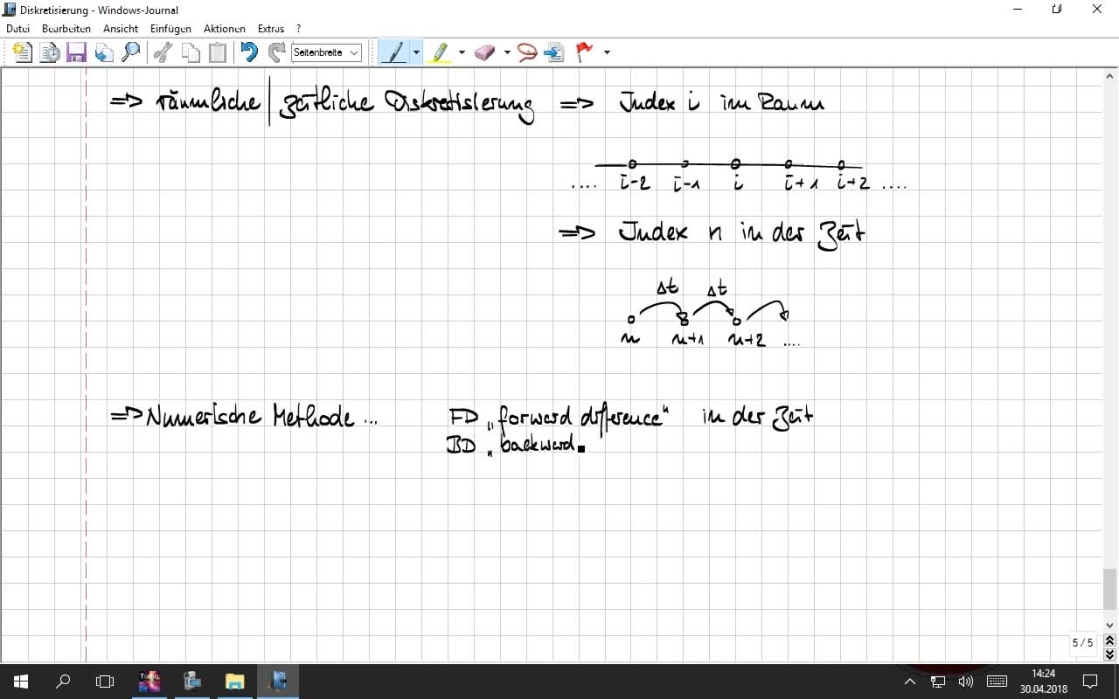 Diskretisierung - Windows-Journal
Datei Bearbeiten Ansicht Einfügen Aktionen Extras ?
Seitenbreite
=> räumliche | zeitliche Diskretisierung => Index i im Raum
.... i-2 i-1 i i+1 i+2 ....
=> Index n in der Zeit
Δt Δt
n n+1 n+2 ....
=> Numerische Methode ... FD „forward difference“ in der Zeit
BD „backward
5 / 5
14:24
30.04.2018